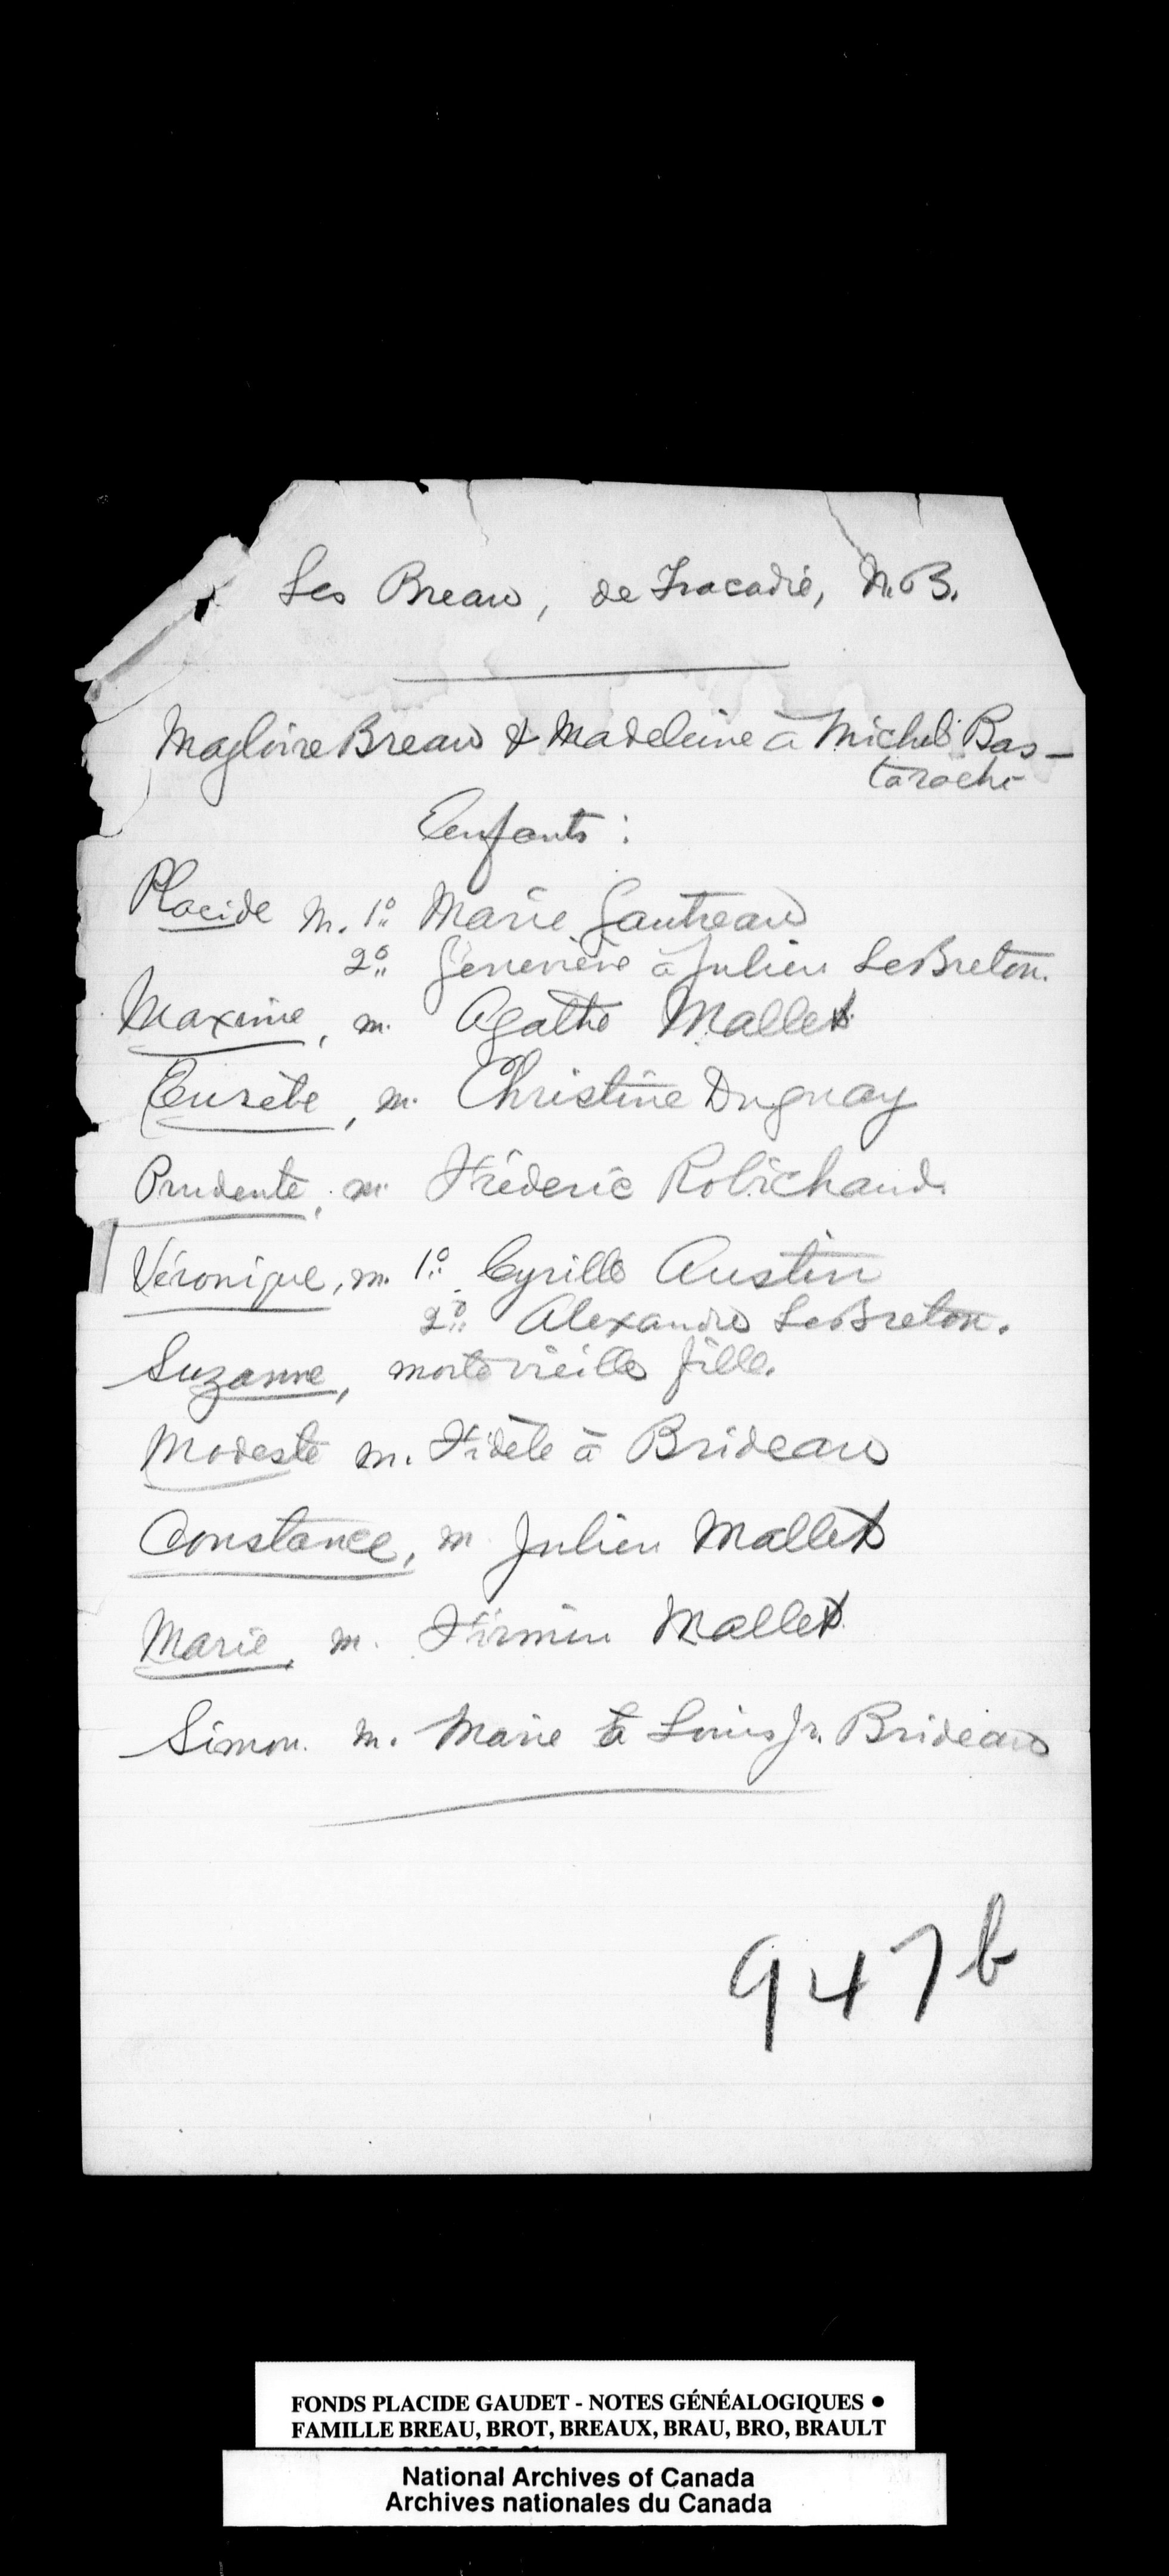 Les Breau, de Tracadie, N.B.
Magloire Breau & Madeleine à Michel Bas-
tarache
Enfants :
Placide m. 1º Marie Gautreau
2º Geneviève à Julien LeBreton.
Maxime, m. Agathe Mallet
Eusèbe, m. Christine Duguay
Prudente, m. Fréderic Robichaud.
Véronique, m. 1º Cyrille Austin
2º Alexandre LeBreton.
Suzanne, morte vieille fille.
Modeste m. Fidèle à Brideau
Constance, m. Julien Mallet
Marie, m. Firmin Mallet
Simon. m. Marie à Louis Jr. Brideau
947b
FONDS PLACIDE GAUDET - NOTES GÉNÉALOGIQUES ●
FAMILLE BREAU, BROT, BREAUX, BRAU, BRO, BRAULT
National Archives of Canada
Archives nationales du Canada